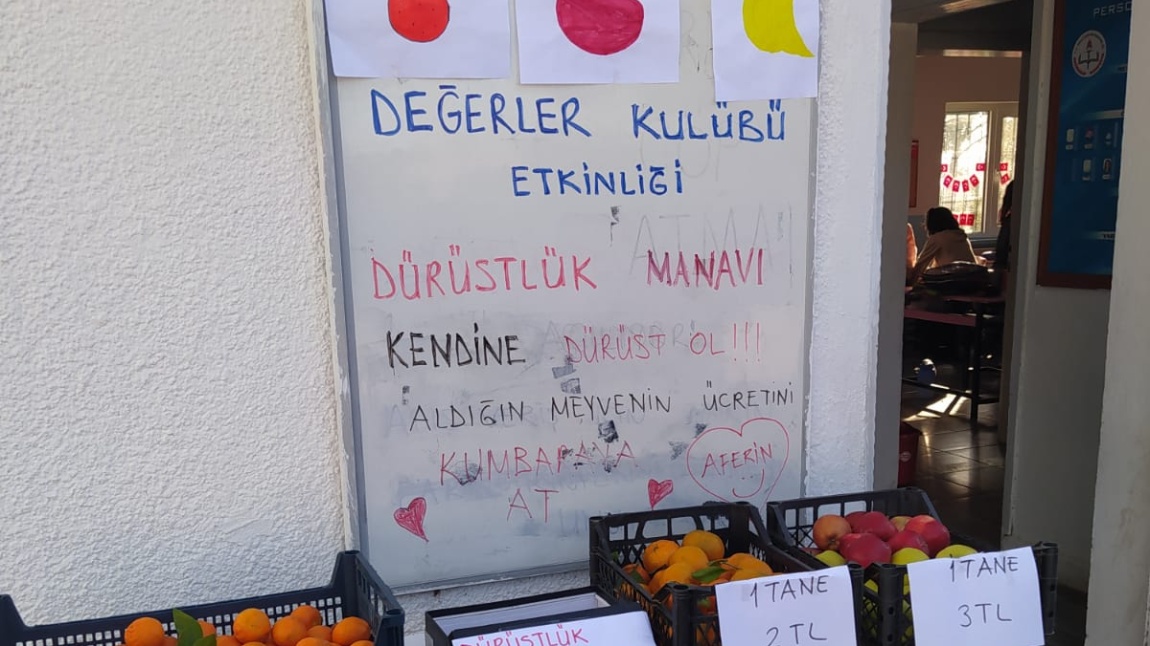 DEĞERLER KULÜBÜ
ETKİNLİĞİ
DÜRÜSTLÜK MANAVI
KENDİNE DÜRÜST OL!!!
ALDIĞIN MEYVENİN ÜCRETİNİ
KUMBARAYA
AT
AFERİN
DÜRÜSTLÜK
1 TANE
2 TL
1 TANE
3 TL